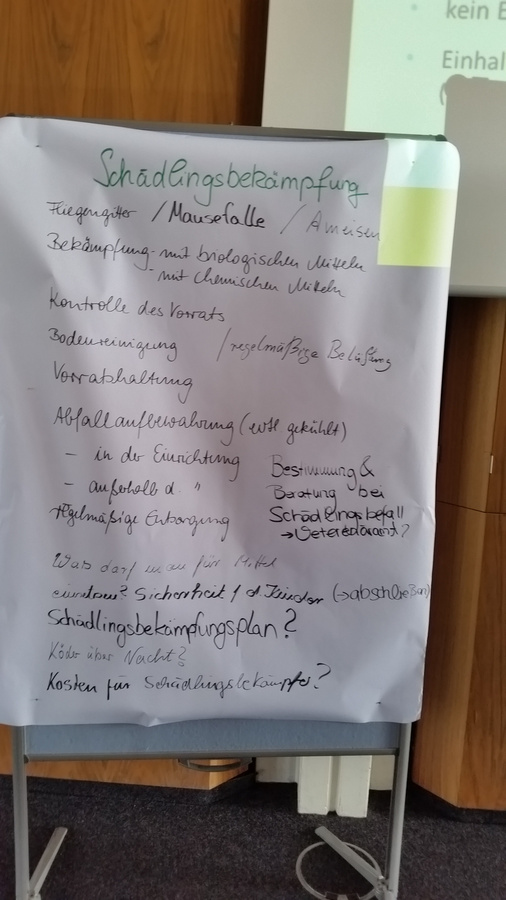 kein
Einhal
Schädlingsbekämpfung
Fliegengitter / Mausefalle / Ameisen
Bekämpfung - mit biologischen Mitteln
- mit chemischen Mitteln
Kontrolle des Vorrats
Bodenreinigung / regelmäßige Belüftung
Vorratshaltung
Abfallaufbewahrung (evtl gekühlt)
- in der Einrichtung
- außerhalb d. "
regelmäßige Entsorgung
Bestimmung &
Beratung bei
Schädlingsbefall
→ Veterenäramt?
Was darf man für Mittel
Sicherheit f. d. Kinder (→ abschließen)
Schädlingsbekämpfungsplan?
Köder über Nacht?
Kosten für Schädlingsbekämpfer?